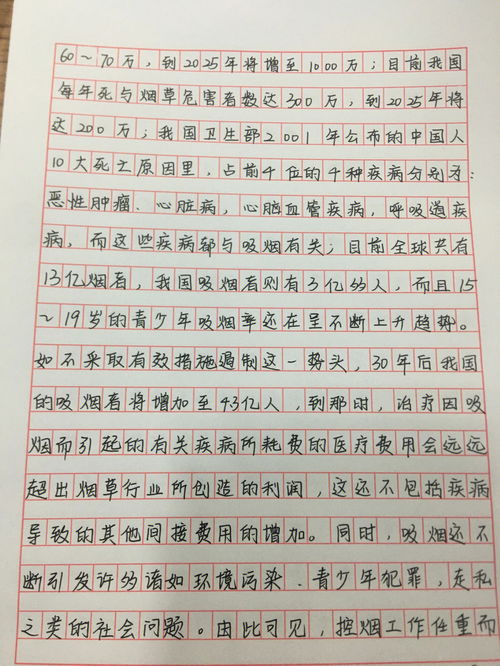 60～70万，到2025年将增至1000万；目前我国
每年死与烟草危害者数达300万，到2025年将
达200万；我国卫生部2001年公布的中国人
10大死亡原因里，占前4位的4种疾病分别为：
恶性肿瘤、心脏病，心脑血管疾病，呼吸道疾
病，而这些疾病都与吸烟有关；目前全球共有
13亿烟者，我国吸烟者则有3亿多人，而且15
～19岁的青少年吸烟率还在呈不断上升趋势。
如不采取有效措施遏制这一势头，30年后我国
的吸烟者将增加至43亿人，到那时，治疗因吸
烟而引起的有关疾病所耗费的医疗费用会远远
超出烟草行业所创造的利润，这还不包括疾病
导致的其他间接费用的增加。同时，吸烟还不
断引发许多诸如环境污染、青少年犯罪，走私
之类的社会问题。由此可见，控烟工作任重而